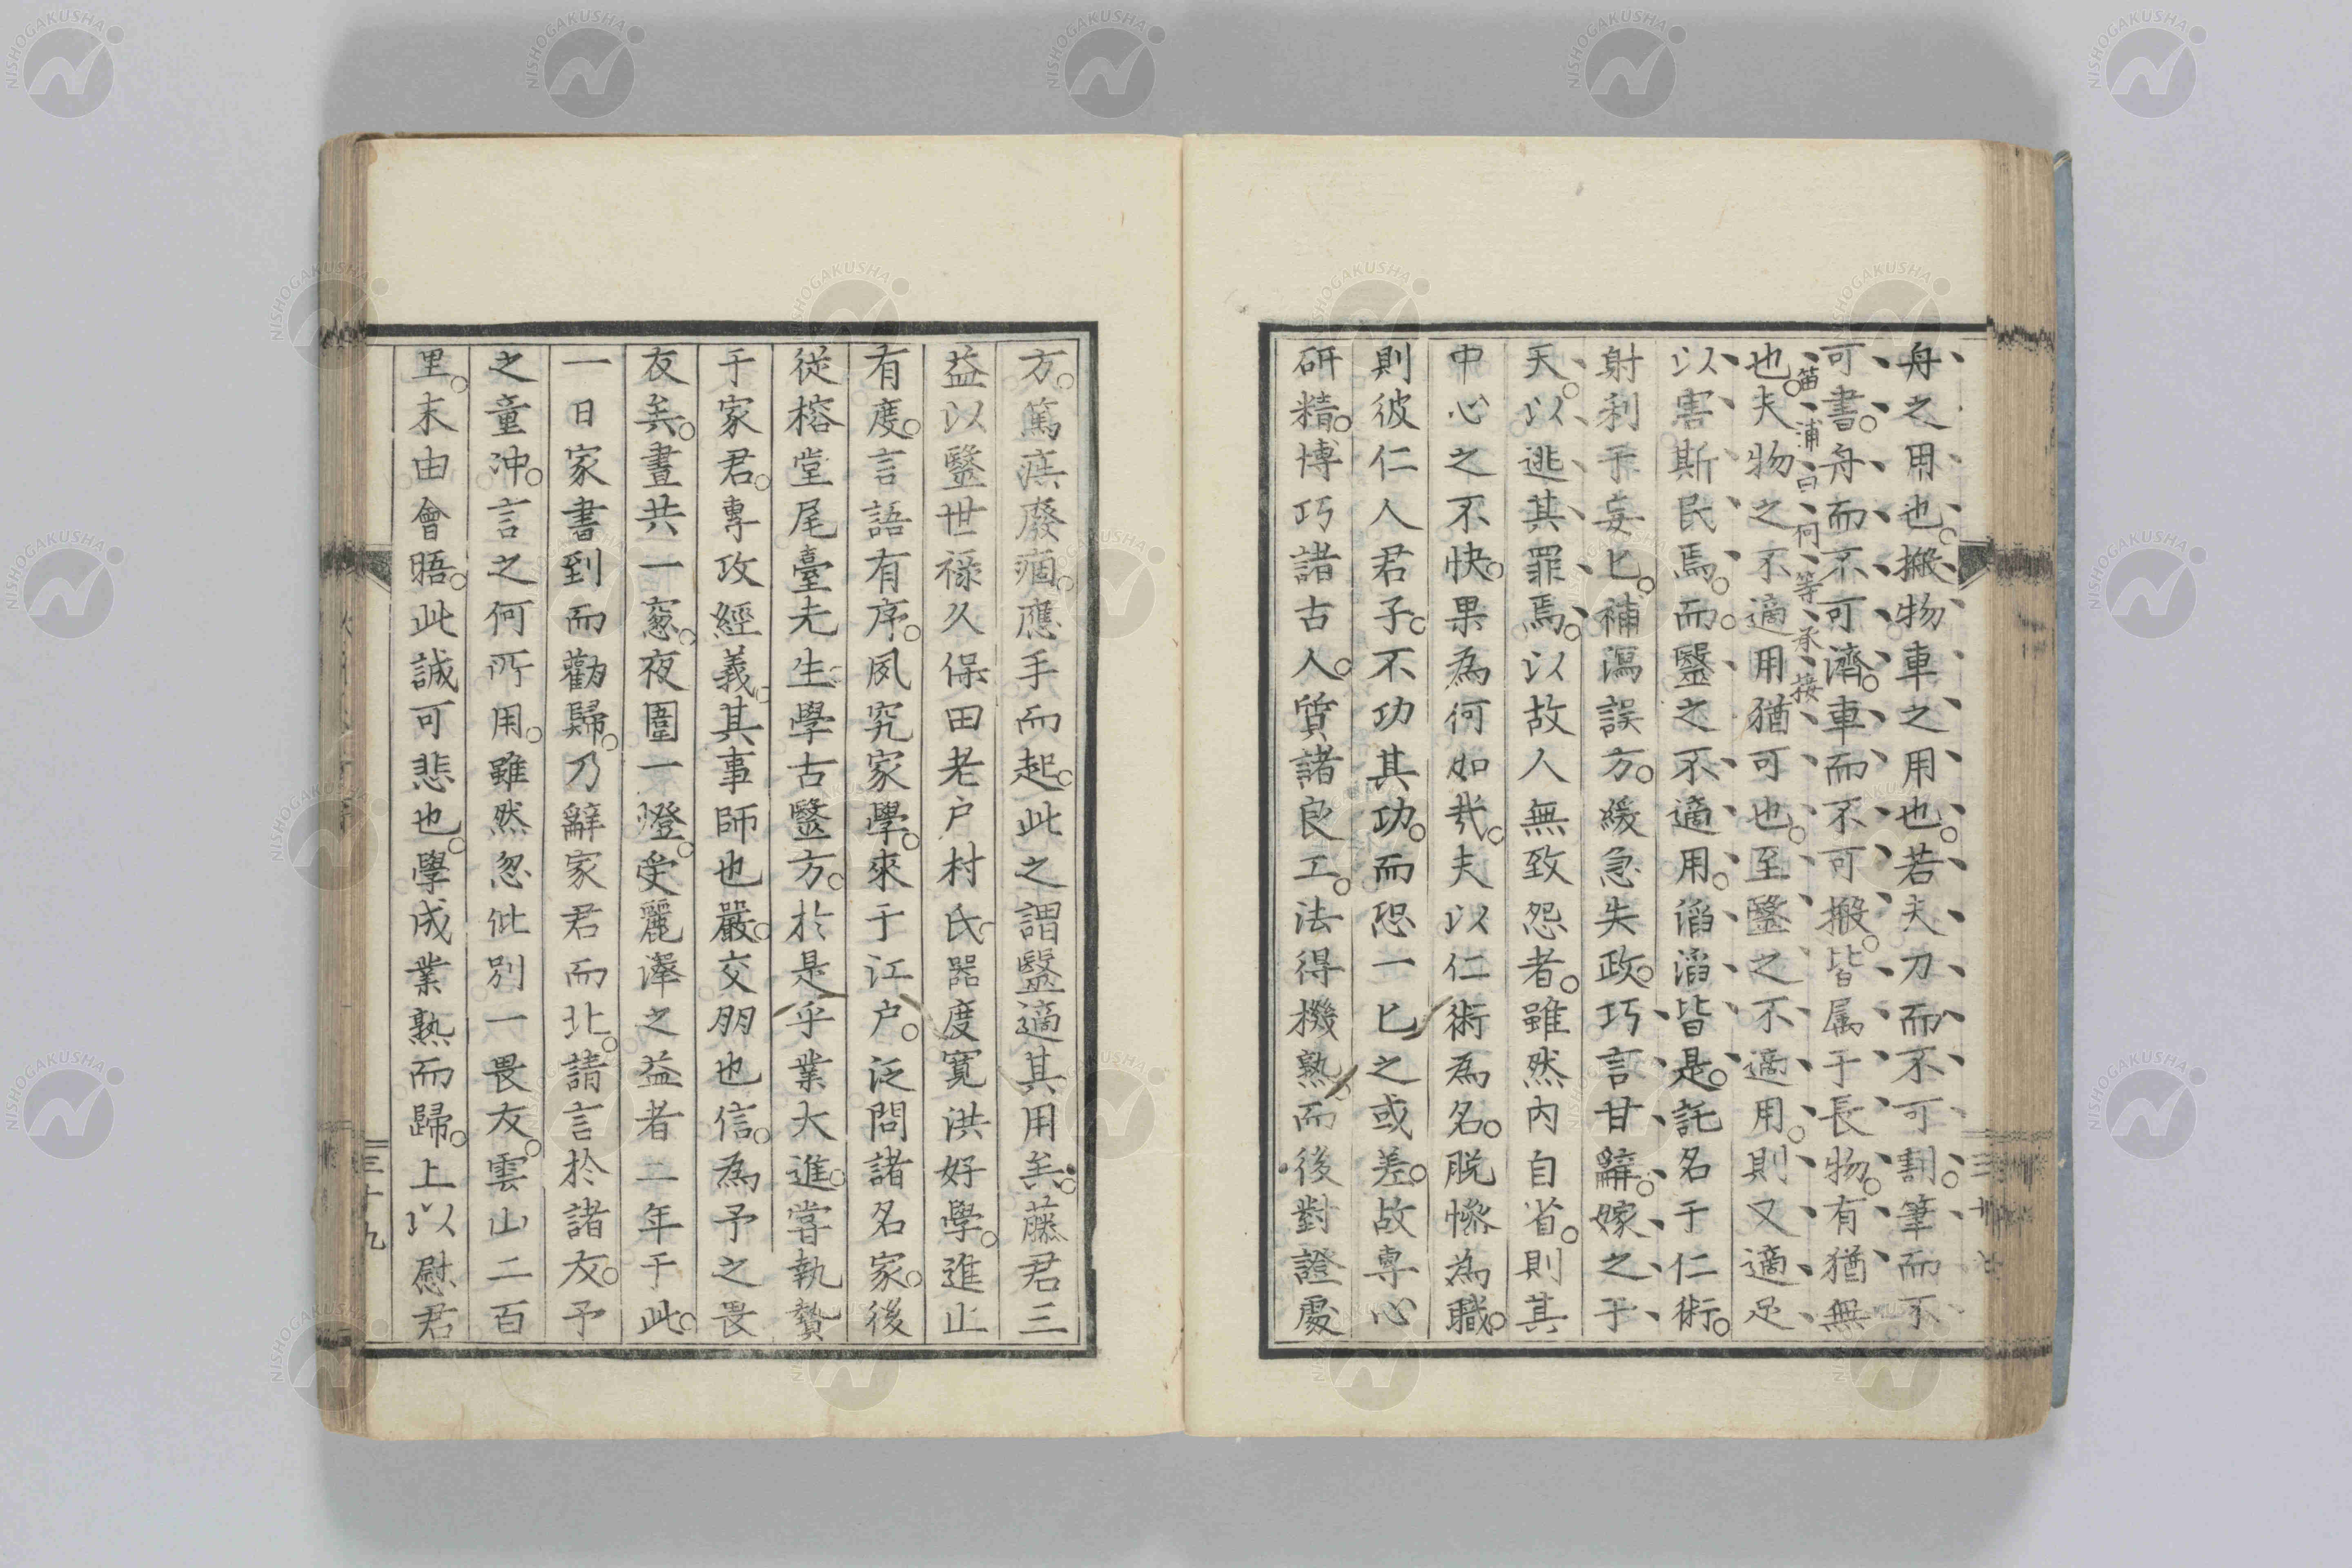 舟之用也。搬物車之用也。若夫刀而不可割。筆而不
可書。舟而不可濟。車而不可搬。皆属于長物。有猶無
笛浦曰何等承接
也。夫物之不適用猶可也。至毉之不適用。則又適足
以害斯民焉。而毉之不適用。滔滔皆是。託名于仁術。
射利于妄匕。補瀉誤方。緩急失政。巧言甘辭。嫁之于
天。以逃其罪焉。以故人無致怨者。雖然內自省。則其
中心之不快。果為何如哉。夫以仁術為名。脱惨為職。
則彼仁人君子。不功其功。而恐一匕之或差。故專心
研精。博巧諸古人。質諸良工。法得機熟。而後對證處
方。篤疾廢痼。應手而起。此之謂毉適其用矣。藤君三
益以毉世禄久保田老户村氏。器度寛洪好學。進止
有度。言語有序。夙究家學。來于江户。泛問諸名家。後
從榕堂尾臺先生。學古毉方。於是乎業大進。嘗執贄
于家君。專攻經義。其事師也嚴。交朋也信。為予之畏
友矣。晝共一窓。夜圍一燈。受麗澤之益者二年于此。
一日家書到而勸歸。乃辭家君而北。請言於諸友。予
之童沖。言之何所用。雖然忽此別一畏友。雲山二百
里。末由會晤。此誠可悲也。學成業熟而歸。上以慰君
三十九